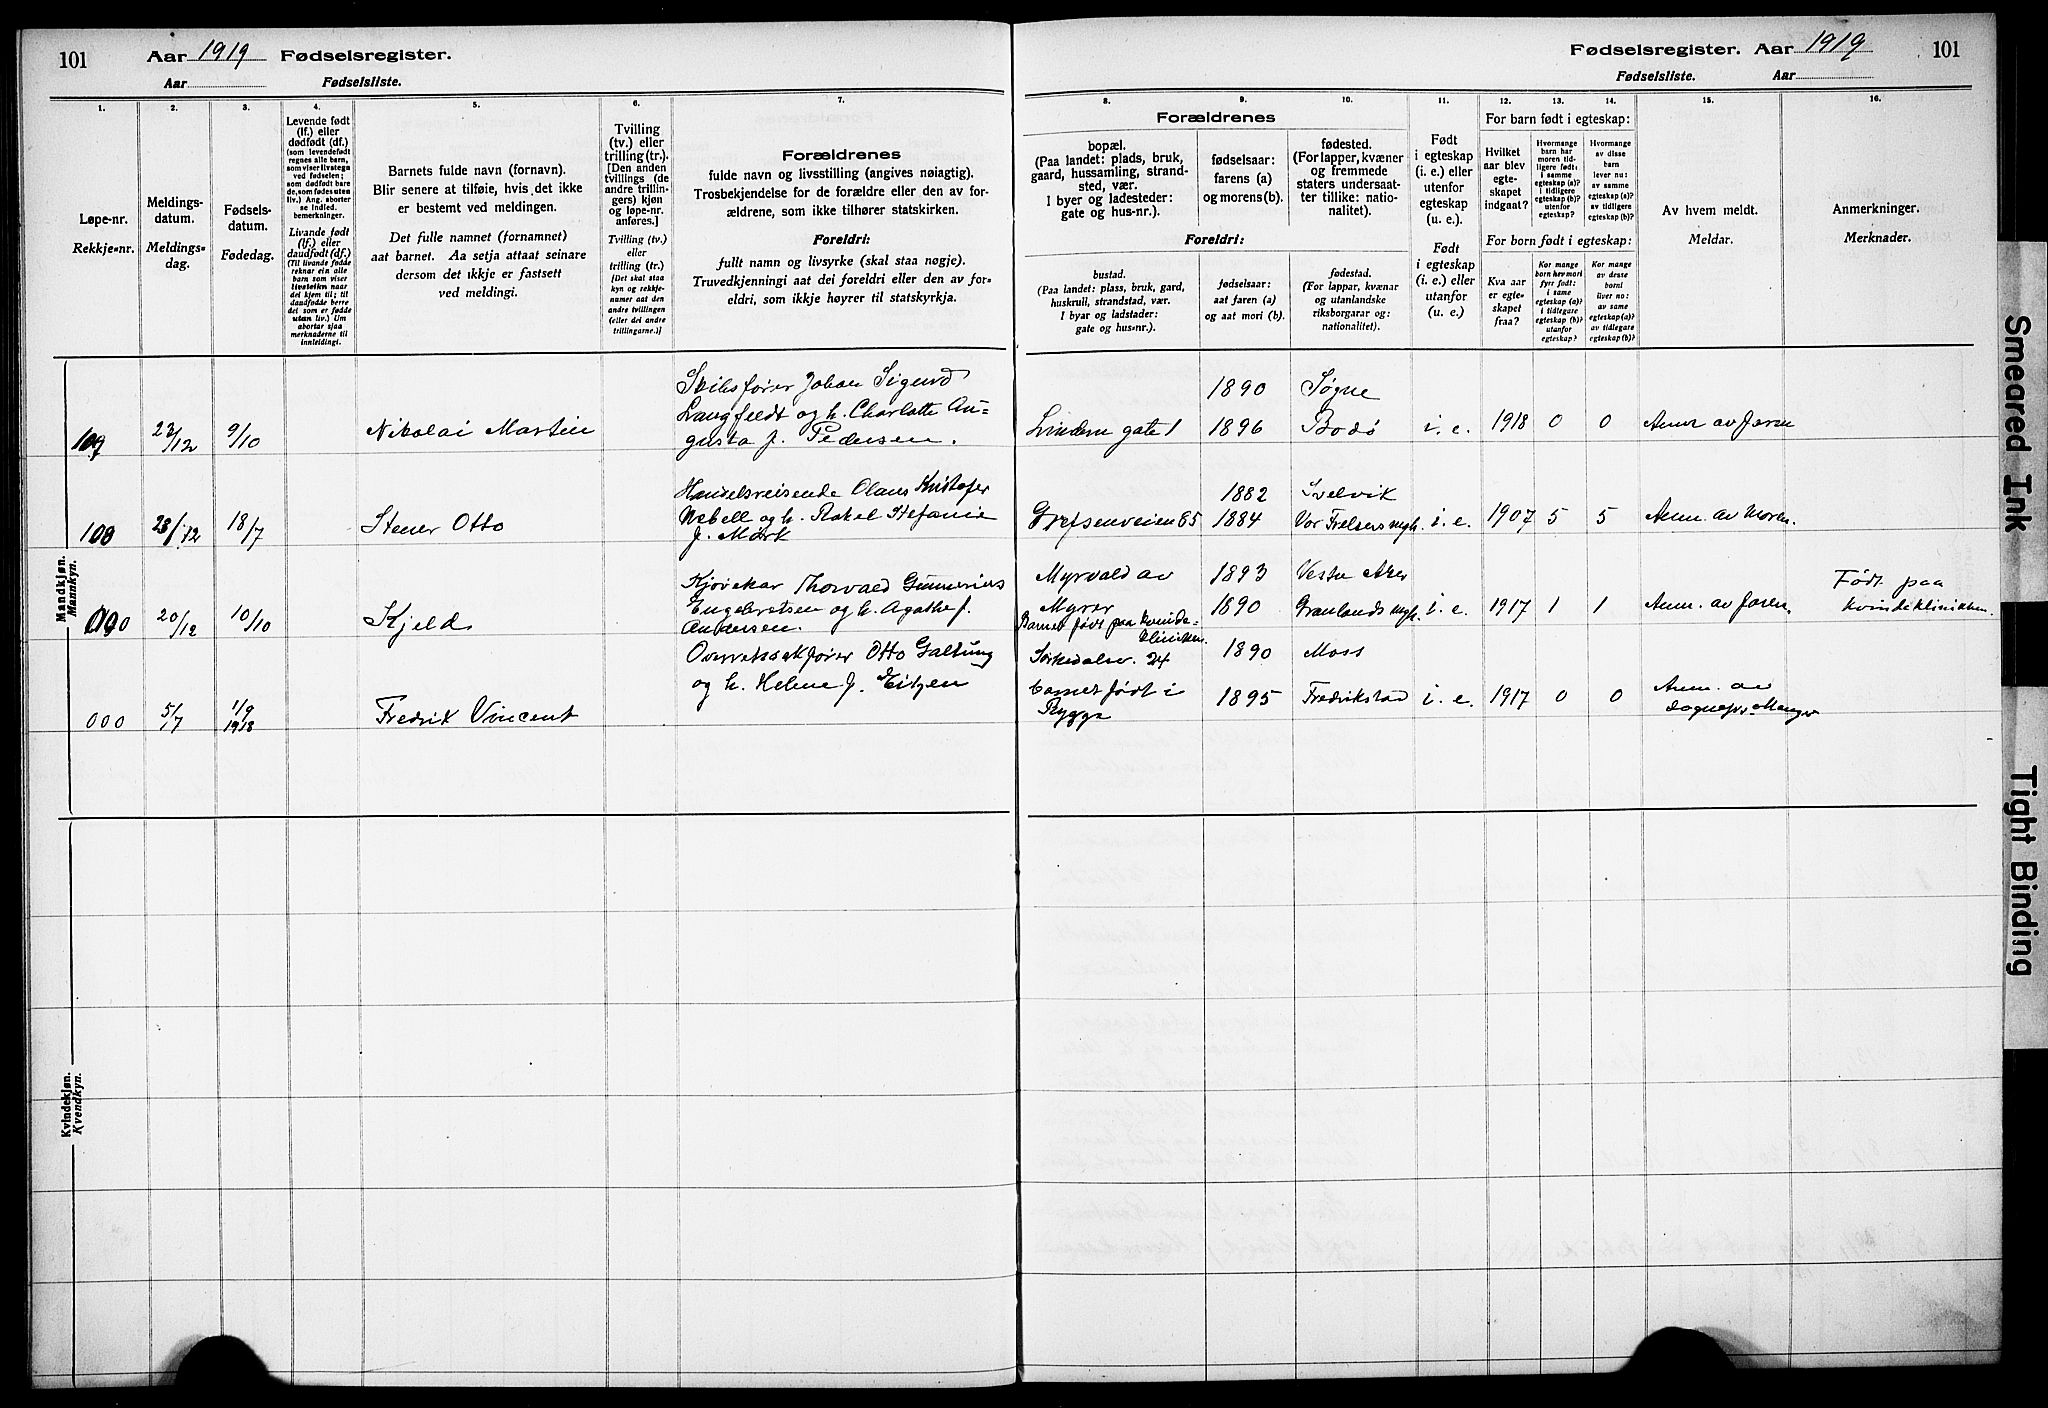 101 Aar 1919 Fødselsregister.
Aar Fødselsliste.
Fødselsregister. Aar 1919 101
Fødselsliste. Aar
1. 2. 3. 4. 5. 6. 7.
Løpe-nr.
Rekkje-nr.
Meldings-
datum.
Meldings-
dag.
Fødsels-
datum.
Fødedag.
Levende født
(lf.) eller
dødfødt (df.)
(som levendefødt
regnes alle barn,
som viser livstegn
ved fødselen;
som dødfødt bare
de, som fødes uten
liv.) Ang. aborter
se indled.
bemerkninger.
Livande født
(lf.) eller
daudfødt (df.)
(Til livande fødde
reknar ein alle
barn som viser
livsteikn naar
dei kjem til; til
daudfødde berre
dei som er fødde
utan liv.) Um
abortar sjaa
merknaderne til
innleidingi.
Barnets fulde navn (fornavn).
Blir senere at tilføie, hvis det ikke
er bestemt ved meldingen.
Det fulle namnet (fornamnet)
aat barnet. Aa setja attaat seinare
dersom det ikkje er fastsett
ved meldingi.
Tvilling
(tv.) eller
trilling (tr.).
[Den anden
tvillings (de
andre trillin-
gers) kjøn
og løpe-nr.
anføres.]
Tvilling (tv.)
eller
trilling (tr.)
[Det skal staa
kyn og rekkje-
numer aat den
andre tvillingen
(eller dei andre
trillingarne.)]
Forældrenes
fulde navn og livsstilling (angives nøiagtig).
Trosbekjendelse for de forældre eller den av for-
ældrene, som ikke tilhører statskirken.
Foreldri:
fullt namn og livsyrke (skal staa nøgje).
Truvedkjenningi aat dei foreldri eller den av for-
eldri, som ikkje høyrer til statskyrkja.
8. 9. 10. 11. 12. 13. 14. 15. 16.
Forældrenes
bopæl.
(Paa landet: plads, bruk,
gaard, hussamling, strand-
sted, vær.
I byer og ladesteder:
gate og hus-nr.).
fødselsaar:
farens (a)
og morens (b).
fødested.
(For lapper, kvæner
og fremmede
staters undersaat-
ter tillike: natio-
nalitet).
Foreldri:
bustad.
(Paa landet: plass, bruk, gard,
huskrull, strandstad, vær.
I byar og ladstader:
gate og hus-nr.).
fødselsaar:
aat faren (a)
og aat mori (b).
fødestad.
(For lappar, kvænar
og utanlandske
riksborgarar og:
nationalitet).
Født
i egteskap
(i. e.) eller
utenfor
egteskap
(u. e.).
Født
i egteskap
(i. e.) eller
utanfor
(u. e.)
For barn født i egteskap:
Hvilket
aar blev
egte-
skapet
indgaat?
Hvormange
barn har
moren tid-
ligere født:
i samme
egteskap (a)?
i tidligere
egteskap (b)?
utenfor
egteskap?
Hvormange
av disse
barn
lever nu:
av samme
egteskap (a)?
av tidligere
egteskap (b)?
For born født i egteskap:
Kva aar
er egte-
skapet
fraa?
Kor mange
born hev mori
fyrr født:
i same
egteskap (a)?
i tidlegare
egteskap (b)?
utanfor
egteskap?
Kor mange
av desse
borni
liver no:
av same
egteskap (a)?
av tidlegare
egteskap (b)?
Av hvem meldt.
Meldar.
Anmerkninger.
Merknader.
Mandkjøn.
Mannkyn.
109 23/12 9/10 Nikolai Martin
Skibsfører Johan Sigurd
Langfeldt og h. Charlotte Au-
gusta f. Pedersen.
Lindern gate 1 1890 1896 Søgne Bodø i. e. 1918 0 0 Anm av faren
108 23/12 18/7 Stener Otto
Handelsreisende Olaus Kristofer
Nebell og h. Rakel Stefanie
f. Mørk
Grefsenveien 65 1882 1884 Svelvik Vor Frelsers mgh. i. e. 1907 5 5 Anm. av moren.
20/12 10/10 Kjeld
Thorvald Gunnerius
Engebretsen og h. Agathe f.
Andersen.
Myrvold av
Myrer
Barnet født paa kvinde-
kliniken.
1893 1890 Vestre Aker Grønlands mgh. i. e. 1917 1 1 Anm. av faren.
Født paa
kvindeklinikken.
000 5/7 1/9 1918 Fredrik Vincent
Overretssakfører Otto Galtung
og h. Helene f. Eitzen
Sørkedalsv. 24
barnet født i
Rygge
1890 1895 Moss Fredrikstad i. e. 1917 0 0 Anm. av
sognepr. Manger
Kvindekjøn.
Kvendkyn.
Smeared Ink
Tight Binding